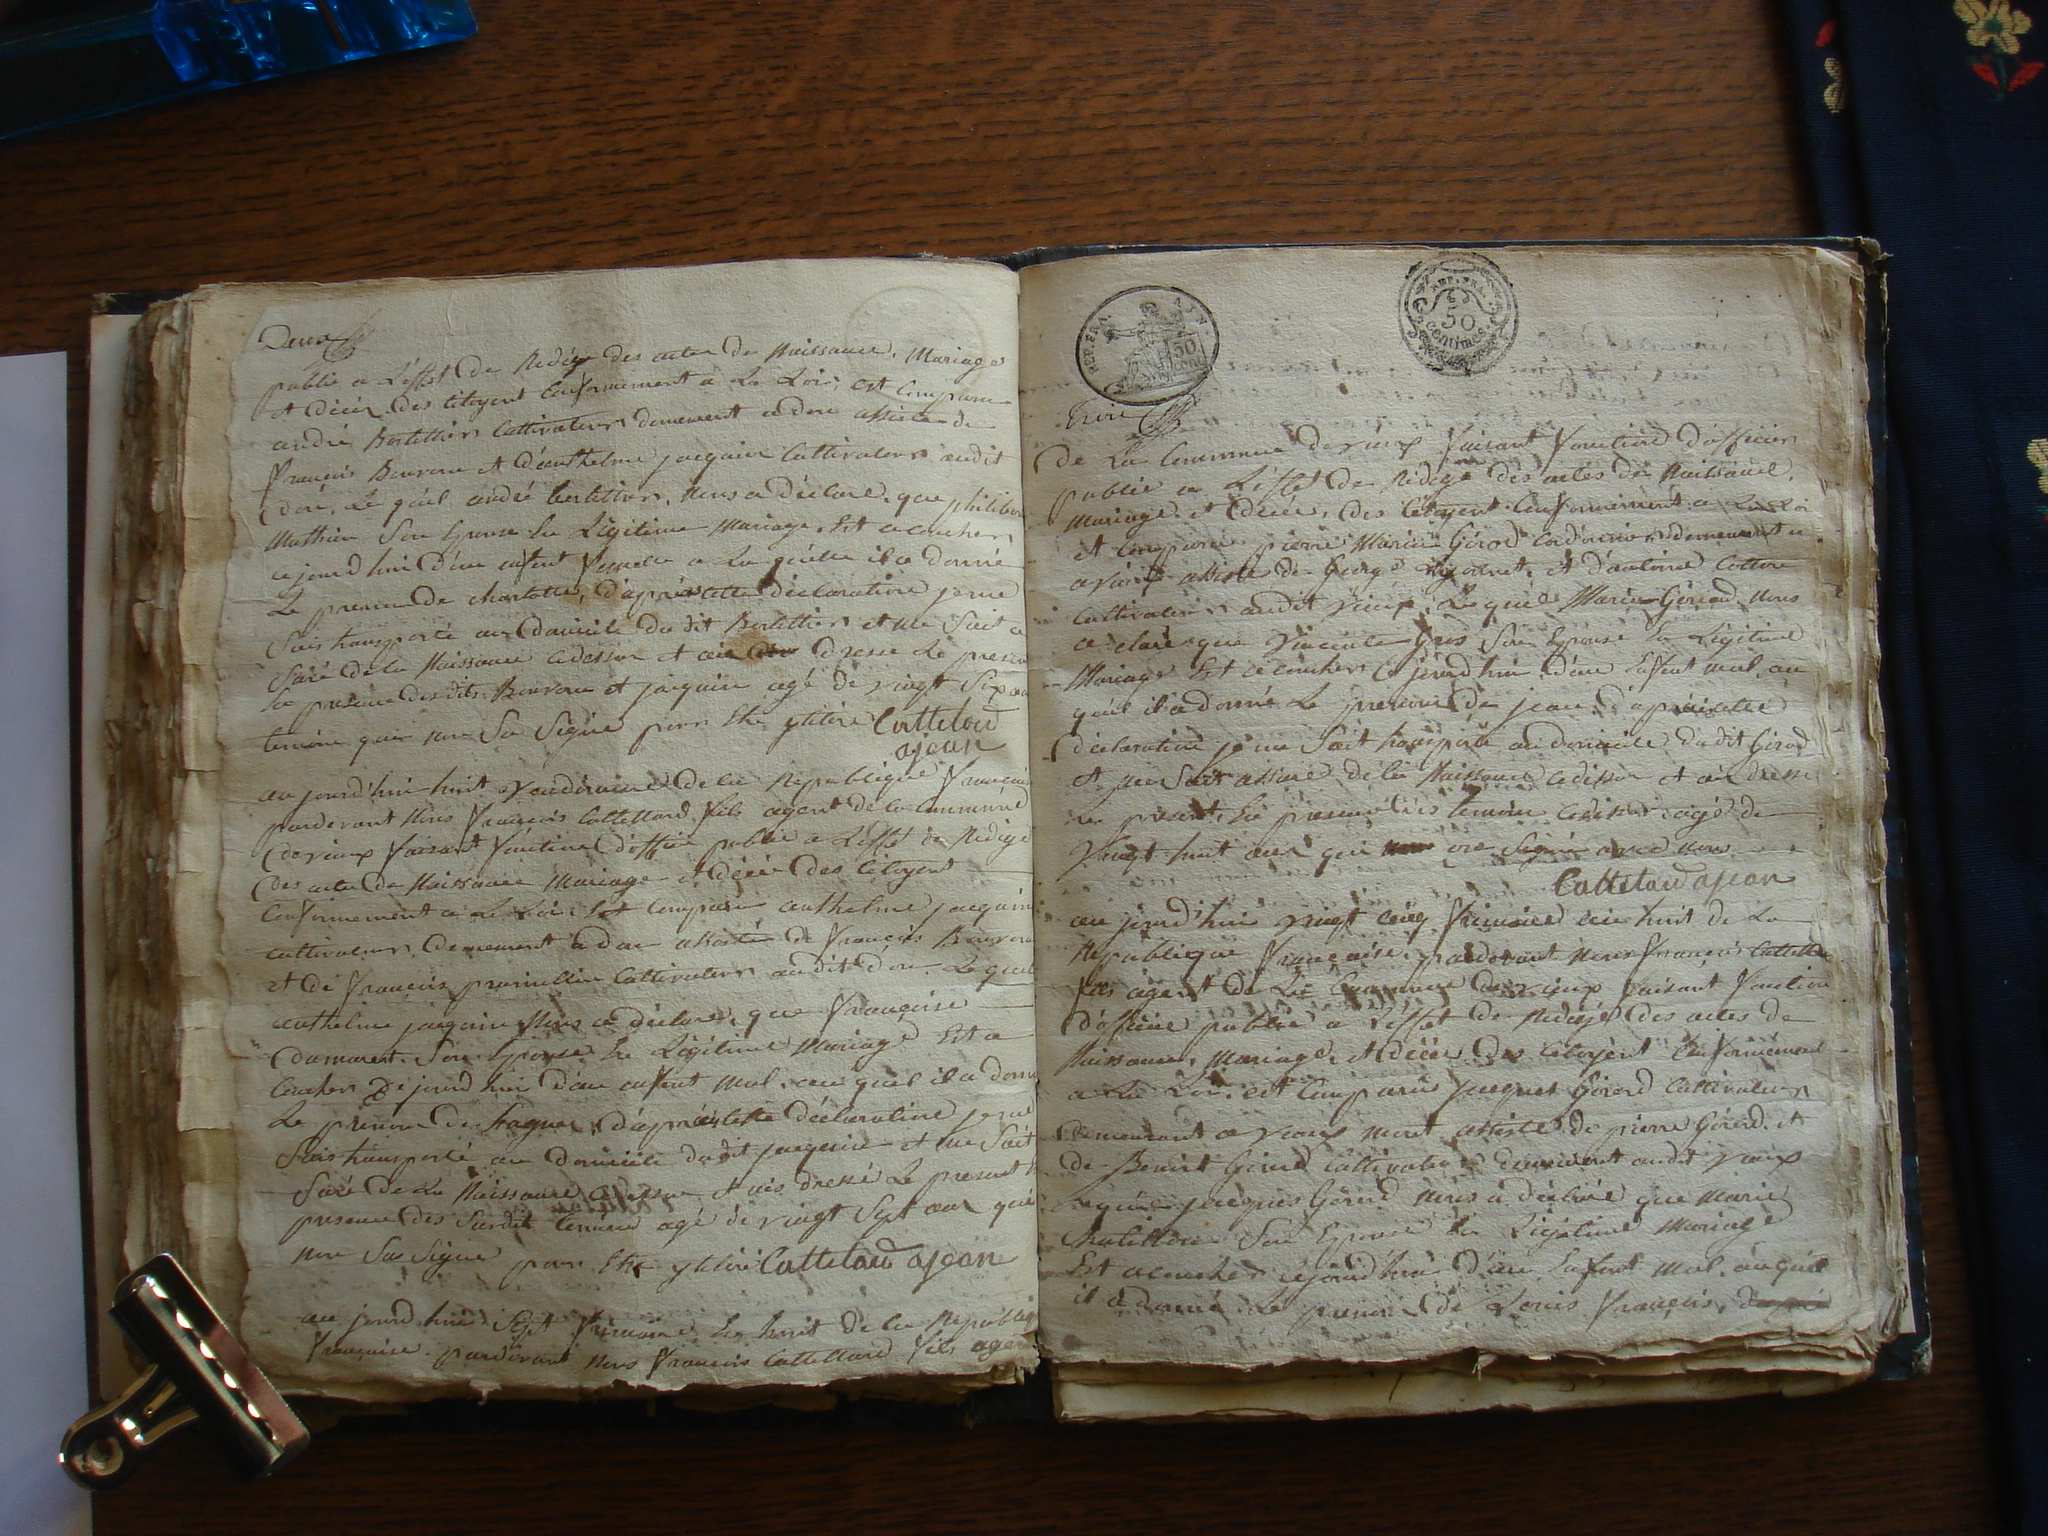 Deux
publie a L'effet de Redigé des actes de Naissance, Mariages
et décés des citoyent Conformement a La Loi, est Comparu
andré Bertettier Cattivateur demeurent a don assiste de
François Bouvron et d'anthelme jacquin Cattivateur audit
don, Le quel andré bertettier, Nous a déclare, que philiber
Mathieu Son Epouse En Légitime Mariage, Est acoucher
cejourd'hui d'un enfent femelle a La quelle il a donné
Le prenom de charlotte, d'après cette déclaration je me
Suis transporté au Domicile du dit Bertettier et me Suit a
Suré de la Naissance cidessu et ai dresse Le presen
En presence desdits Bouvron et jacquin agé de vingt Six an
temoin qui non Su Signe pour Etre ylitéré Cattelard
ajean
au jourd'hui huit Vendémiaire de la Republique françai
pardevant Nous François Cattellard fils agent de la Commune
de vieux faisant fonction d'officie publie a L'effet de Redigé
des actes de Naissance Mariage et décés des Citoyent
Conformement a La Loi, Est Comparu anthelme jacquin
cattivateur, demeurent a don assisté de François Bouvron
et de François Cattivateur audit don. Le quel
anthelme jacquin Nous a déclaré, que Françoise
Son Epouse En Légitime Mariage Est a
Coucher Ce jourd'hui d'un enfent Mal, au quel il a donné
Le prenom de d'après cette déclaration je me
Suis transporté au domicile dudit jacquin et me Suit
Suré de La Naissance cidessu et ais dressé Le present
presence des Susdit temoin agé de vingt Sept ans qui
non Su Signe pour Etre ylitéré Cattelard ajean
au jourd'hui Sept frimaire En huit de la Republiq
Française, pardevant Nous François Cattellard fils agen
REP. FRA. AIN.
50
REP. FRA.
50
centimes
Trois
de La Commune de vieux faisant fonction d'officier
publie a L'effet de Redigé des actes de Naissance,
Mariage et décés, des Citoyent Conformement a La Loi
et Comparu pierre Marie Girod Cordonnier demeurent a
assiste de George et d'antoine Cottin
Cattivateur audit vieux, Le quel Marie Girod Nous
a claré que Vincente Gros Son Epouse En Légitime
Mariage Est acoucher Ce jourd'hui d'un Enfent mal, au
quel il a donné Le prenom de jean, d'après cette
déclaration je me Suit transporté au domicile dudit Girod
et me Suit assuré de la Naissance cidessu et ai dresse
Le present, En presence des temoin cidessu agé de
Vingt huit ans qui on Signé avec nous
Cattelard ajean
au jourd'hui vingt cinq frimaire an huit de La
Republique française, pardevant Nous François Cattellard
fils agent de La Commune de vieux faisant fonction
d'officie publie a L'effet de Redigé des actes de
Naissance, Mariage, et décés des citoyent Conformément
a La Loi, est Comparu jacques Girod Cattivateur
demeurant a vieux assiste de pierre Girod, et
de Benoit Girod Cattivateur demeurent audit vieux
Le quel jacques Girod Nous a déclaré que Marie
Son Epouse En Légitime Mariage
Est acoucher cejourd'hui d'un Enfent Mal, auquel
il a donné Le prenom de Louis François,